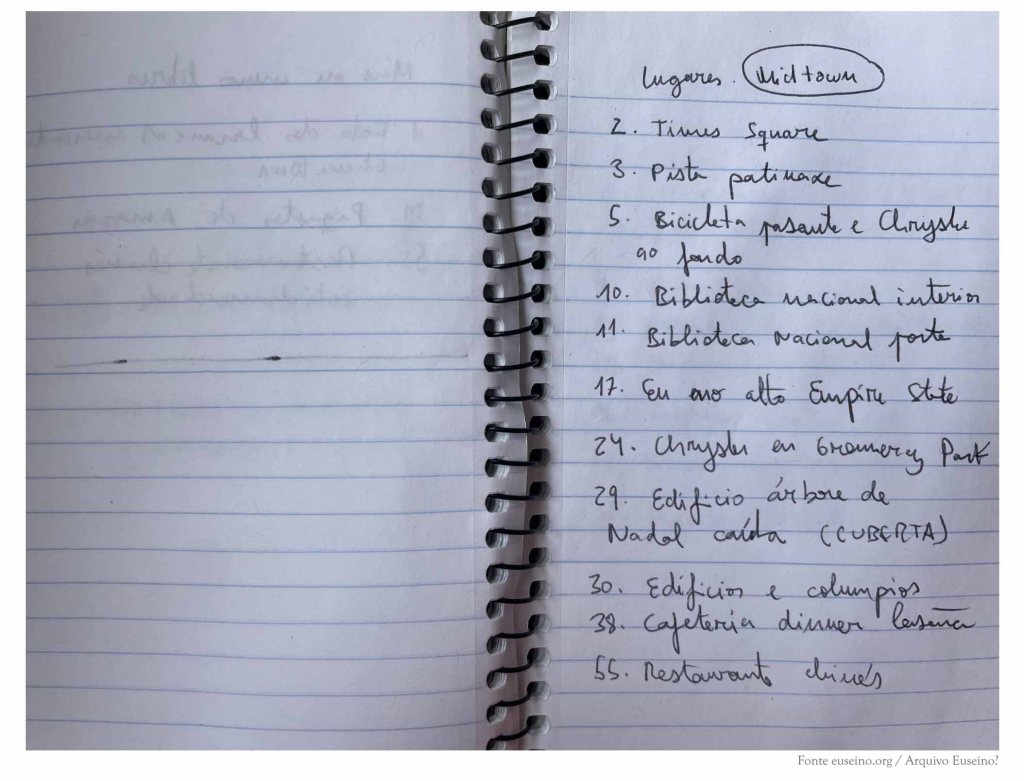 Lugares. Midtown
2. Times Square
3. Pista patinaxe
5. Bicicleta pasante e Chrysler
ao fondo
10. Biblioteca nacional interior
11. Biblioteca Nacional porte
17. Eu no alto Empire State
24. Chrysler en Gramercy Park
29. Edificio árbore de
Nadal caída (CUBERTA)
30. Edificios e columpios
38. Cafetería dinner lasaña
55. Restaurante chinés
Fonte euseino.org / Arquivo Euseino?